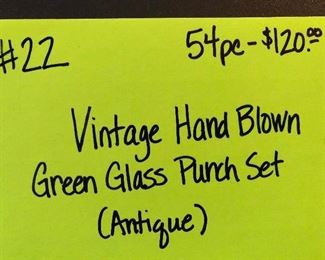 #22 54pc-$120.00
Vintage Hand Blown
Green Glass Punch Set
(Antique)